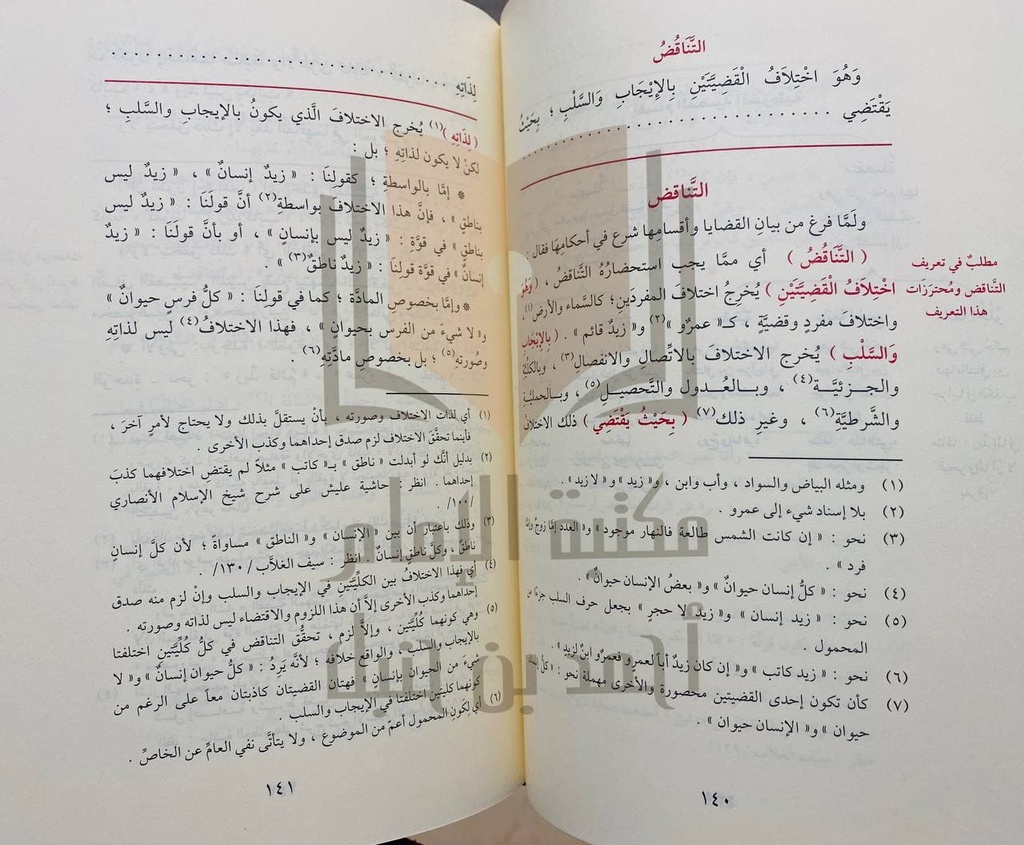 التَّنَاقُضُ
وَهُوَ اخْتِلَافُ الْقَضِيَّتَيْنِ بِالْإِيْجَابِ وَالسَّلْبِ ؛ بِحَيْثُ
يَقْتَضِي . . . . . . . . . . . . . . . . . .
التَّناقض
ولمَّا فرغ من بيان القضايا وأقسامِها شرع في أحكامِها فقال :
( التَّنَاقُضُ ) أي ممَّا يجب استحضارُهُ التَّناقضُ ، ( وَهُوَ
اخْتِلَافُ الْقَضِيَّتَيْنِ ) يُخرِجُ اختلافَ المفردَينِ؛ كالسَّماء والأرضِ(١)،
واختلافَ مفردٍ وقضيَّةٍ ، كـ« عمرٌو »(٢) و« زيدٌ قائم » . ( بِالْإِيْجَابِ
وَالسَّلْبِ ) يُخرج الاختلافَ بالاتِّصالِ والانفصالِ(٣) ، وبالكلِّيَّةِ
والجـزئيَّـة(٤) ، وبـالعدول والتَّحصيـل(٥) ، وبـالحمليَّة
والشَّرطيَّة(٦) ، وغيرِ ذلك(٧) ( بِحَيْثُ يَقْتَضي ) ذلك الاختلافُ
مطلبٌ في تعريف
التَّناقض ومُحترَزات
هذا التعريف
(١) ومثله البياض والسواد ، وأب وابن ، و« زيد » و« لا زيد » .
(٢) بلا إسناد شيء إلى عمرو .
(٣) نحو : « إن كانت الشمس طالعة فالنهار موجود » و« العدد إمَّا زوجٌ وإمَّا
فرد » .
(٤) نحو : « كلُّ إنسان حيوانٌ » و« بعضُ الإنسان حيوانٌ » .
(٥) نحو : « زيد إنسان » و« زيد لا حجر » بجعل حرف السلب جزءًا من
المحمول .
(٦) نحو : « زيد كاتب » و« إن كان زيدٌ أباً لعمرو فعمرٌو ابنٌ لزيد » .
(٧) كأن تكون إحدى القضيتين محصورة والأخرى مهملة نحو : « كلُّ إنسان
حيوان » و« الإنسان حيوان » .
١٤٠
لِذَاتِهِ . . . . . . . . . . . . . . . . . .
( لِذَاتِهِ )(١) يُخرج الاختلافَ الَّذي يكونُ بالإيجابِ والسَّلبِ ؛
لكنْ لا يكون لذاتِهِ ؛ بل :
* إمَّا بالواسطةِ ؛ كقولِنَا : « زيدٌ إنسانٌ » ، « زيدٌ ليس
بناطقٍ » ، فإنَّ هذا الاختلافَ بواسطةِ(٢) أنَّ قولَنَا : « زيدٌ ليس
بناطقٍ » في قوَّة : « زيدٌ ليس بإنسانٍ » ، أو بأنَّ قولَنَا : « زيدٌ
إنسانٌ » في قوَّة قولنَا : « زيدٌ ناطقٌ(٣) » .
* وإمَّا بخصوصِ المادَّة ؛ كما في قولنَا : « كلُّ فرسٍ حيوانٌ »
و« لا شيءَ من الفرس بحيوانٍ » ، فهذا الاختلافُ(٤) ليس لذاتِهِ
وصُورتهِ(٥) ؛ بل بخصوصِ مادَّتِهِ(٦) .
(١) أي لذات الاختلاف وصورته ، بأنْ يستقلَّ بذلك ولا يحتاج لأمرٍ آخرَ ،
فأينما تحقَّقَ الاختلاف لزم صدق إحداهما وكذب الأخرى .
(٢) بدليل أنَّك لو أبدلت « ناطق » بـ« كاتب » مثلاً لم يقتضِ اختلافهما كذبَ
إحداهما . انظر : حاشية عليش على شرح شيخ الإسلام الأنصاري
/١٠٠/ .
(٣) وذلك باعتبار أن بين « الإنسان » و« الناطق » مساواةً ؛ لأن كلَّ إنسانٍ
ناطقٌ ، وكلَّ ناطقٍ إنسانٌ . انظر : سيف الغلَّاب /١٣٠/ .
(٤) أي فهذا الاختلافُ بين الكلِّيَّتَينِ في الإيجاب والسلب وإنْ لزم منه صدق
إحداهما وكذب الأخرى إلَّا أن هذا اللزوم والاقتضاء ليس لذاته وصورته .
(٥) وهي كونهما كُلِّيَّتين ، وإلَّا لزم ، تحقُّق التناقض في كلِّ كُلِّيَّتَينِ اختلفتا
بالإيجاب والسلب ، والواقع خلافه ؛ لأنَّه يَرِدُ : « كلُّ حيوان إنسانٌ » و« لا
شيءَ من الحيوان بإنسان » فهتان القضيتان كاذبتان معاً على الرغم من
كونهما كليتين اختلفتا في الإيجاب والسلب .
(٦) أي لكون المحمول أعم من الموضوع ، ولا يتأتَّى نفي العامِّ عن الخاصِّ .
١٤١